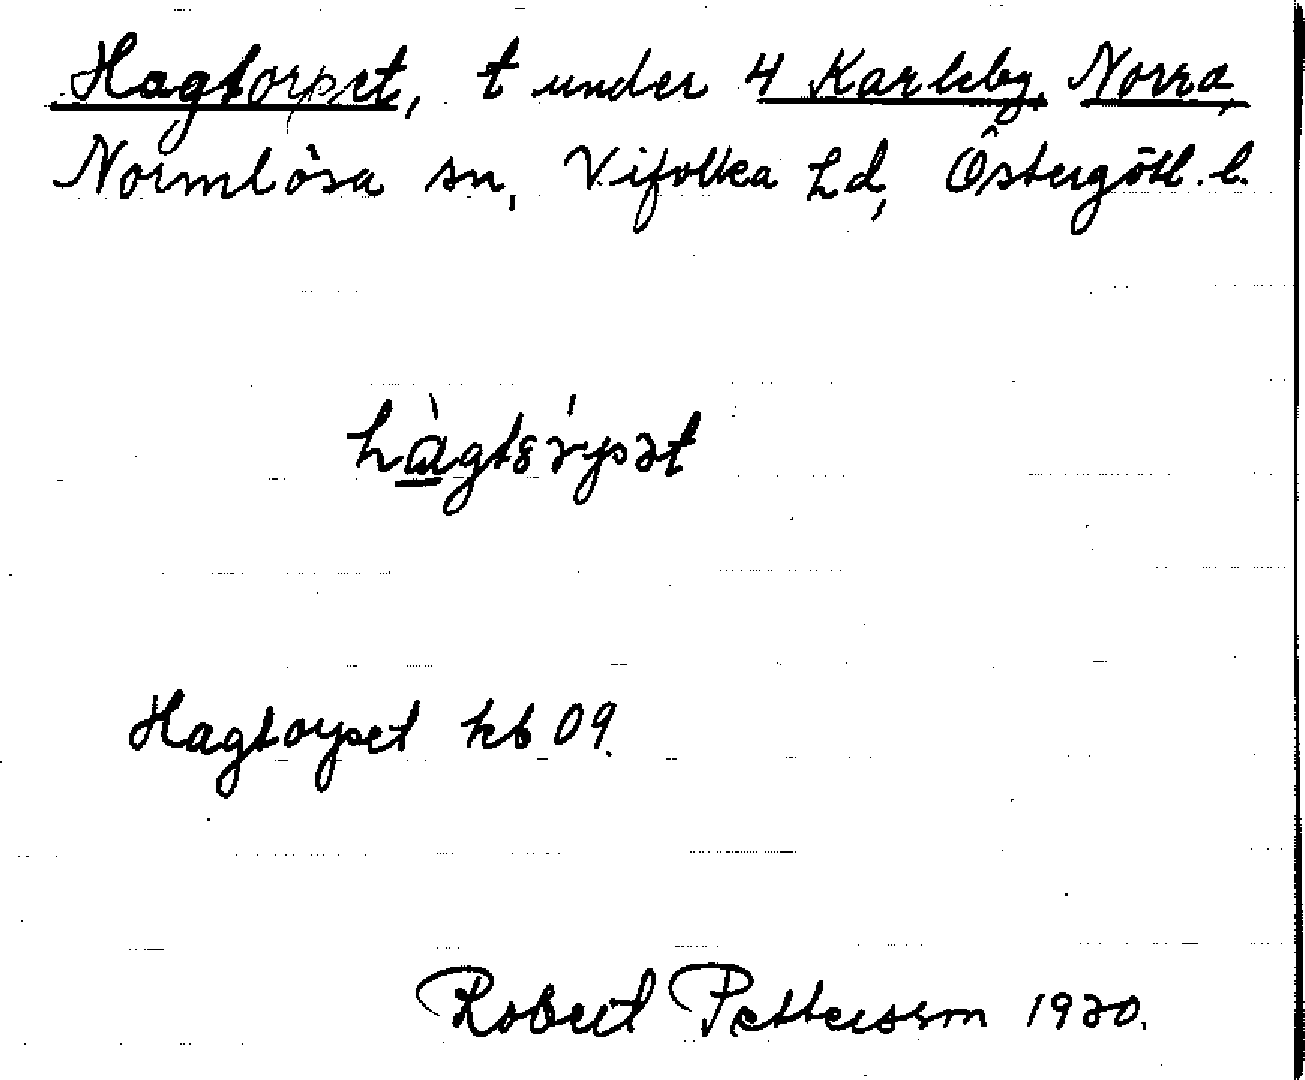 Hagtorpet, t under 4 Karleby, Norra,
Normlösa sn, Vifolka hd, Östergötl. l.
Hagtorpet kb 09.
Robert Pettersson 1920.